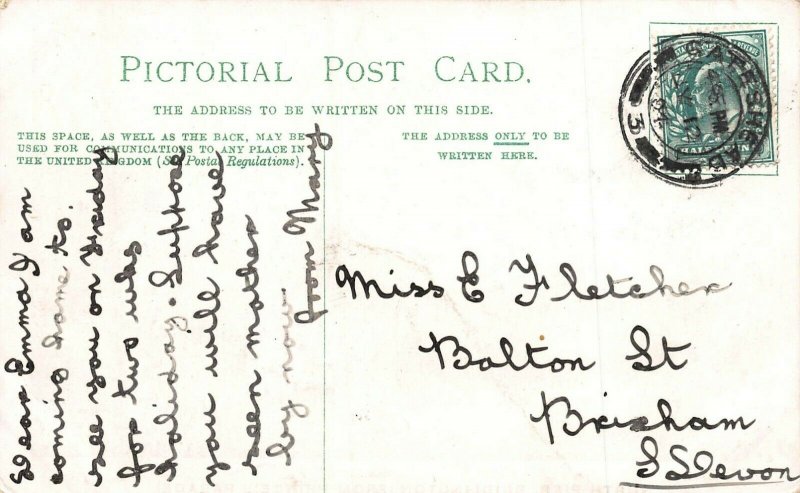 PICTORIAL POST CARD.
THE ADDRESS TO BE WRITTEN ON THIS SIDE.
THIS SPACE, AS WELL AS THE BACK, MAY BE
USED FOR COMMUNICATIONS TO ANY PLACE IN
THE UNITED KINGDOM (See Postal Regulations).
THE ADDRESS ONLY TO BE
WRITTEN HERE.
GATESHEAD
3
Dear Emma I am
coming home to.
see you on Friday
for two wks
holiday. Suppose
you will have
seen mother
by now.
from Mary
Miss E Fletcher
Bolton St
Brixham
S Devon